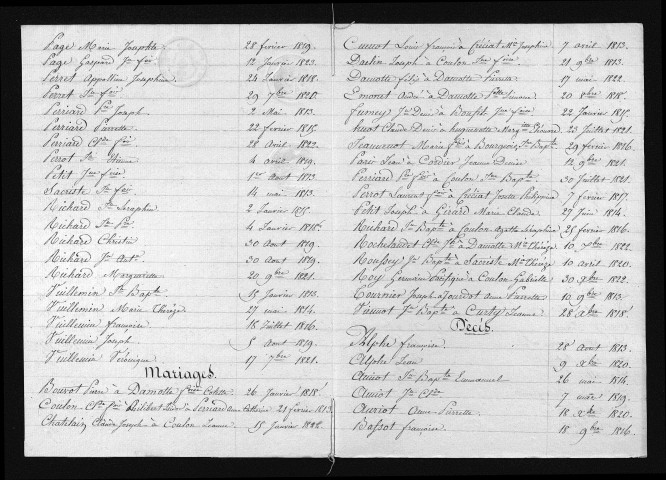 Page Marie Josephte 28 février 1819.
Page Gaspard Jn fois 12 Janvier 1823.
Perret Appolline Joséphine 24 Janvier 1818.
Perret Jn fois 29 7bre 1820.
Perriard Jn Joseph 2 Mai 1813.
Perriard Pierrette 22 février 1815.
Perriard Cl. fois 28 Avril 1822.
Perrot Jn Étienne 4 avril 1819.
Petit Jne foise 1er Aout 1813.
Sacriste Jn fois 14 mai 1813.
Richard Jn Séraphin 2 Janvier 1815.
Richard Jn Pre 4 Janvier 1818.
Richard Christin 30 Aout 1819.
Richard Jn Ant. 30 Aout 1819.
Richard Marguerite 20 9bre 1821.
Vuillemin Jn Bapte 15 Janvier 1813.
Vuillemin Marie Thérèse 27 mai 1814.
Vuillemin françoise 18 Juillet 1816.
Vuillemin Joseph 5 Aout 1819.
Vuillemin Véronique 17 7bre 1821.
Mariages.
Bouvot Pierre à Damotte foise Colette 26 Janvier 1818.
Coulon Cl. fois Philibert à Perriard Anne 21 février 1813
Chatelain Claude Joseph à Coulon Jeanne 15 Janvier 1822.
Cuenot Louis françois à Créciat Me Josephine 7 avril 1813.
Darlin Joseph à Coulon Jne foise 21 9bre 1813.
Damotte félix à Damotte Pierrette 17 mai 1822.
Emonet André à Damotte Simone 20 8bre 1818.
Jn Denis à Bouffet Jne foise 22 Janvier 1815.
huot Claude Denis à huguenotte Margite 23 Juillet 1821.
Jeannenot Marie fois à Bourgeois Jn Bapte 29 février 1816.
Paris Jean à Cordier Jeanne Denise 12 9bre 1821.
Perriard Jn fois à Coulon Jne Bapte 30 Juillet 1821.
Perrot Laurent fois à Créciat Josette Philippine 7 février 1817.
Petit Joseph à Gérard Marie Claude 27 Juin 1814.
Richard Jn Bapte à Coulon Agathe Séraphine 25 février 1816.
Rochelandet Cl. Jh à Damotte Me Thérèse 10 7bre 1822.
Roussey Jn Bapte à Sacriste Me Thérèse 10 avril 1820.
Roy Germain Pacifique à Coulon Gabrielle 30 Xbre 1822.
Tournier Joseph à Jourdot Anne Pierrette 10 9bre 1813.
Viénot Jn Bapte à Curty Jeanne 28 Xbre 1818.
Décès.
Alphe françoise 28 Aout 1813.
Alphe Jean 9 Xbre 1820.
Amiot Jn Bapte Emmanuel 26 mai 1814.
Amiot Jn Cl. 7 mars 1819.
Auriot Anne Pierrette 18 Xbre 1820.
Bassot françoise 18 9bre 1816.